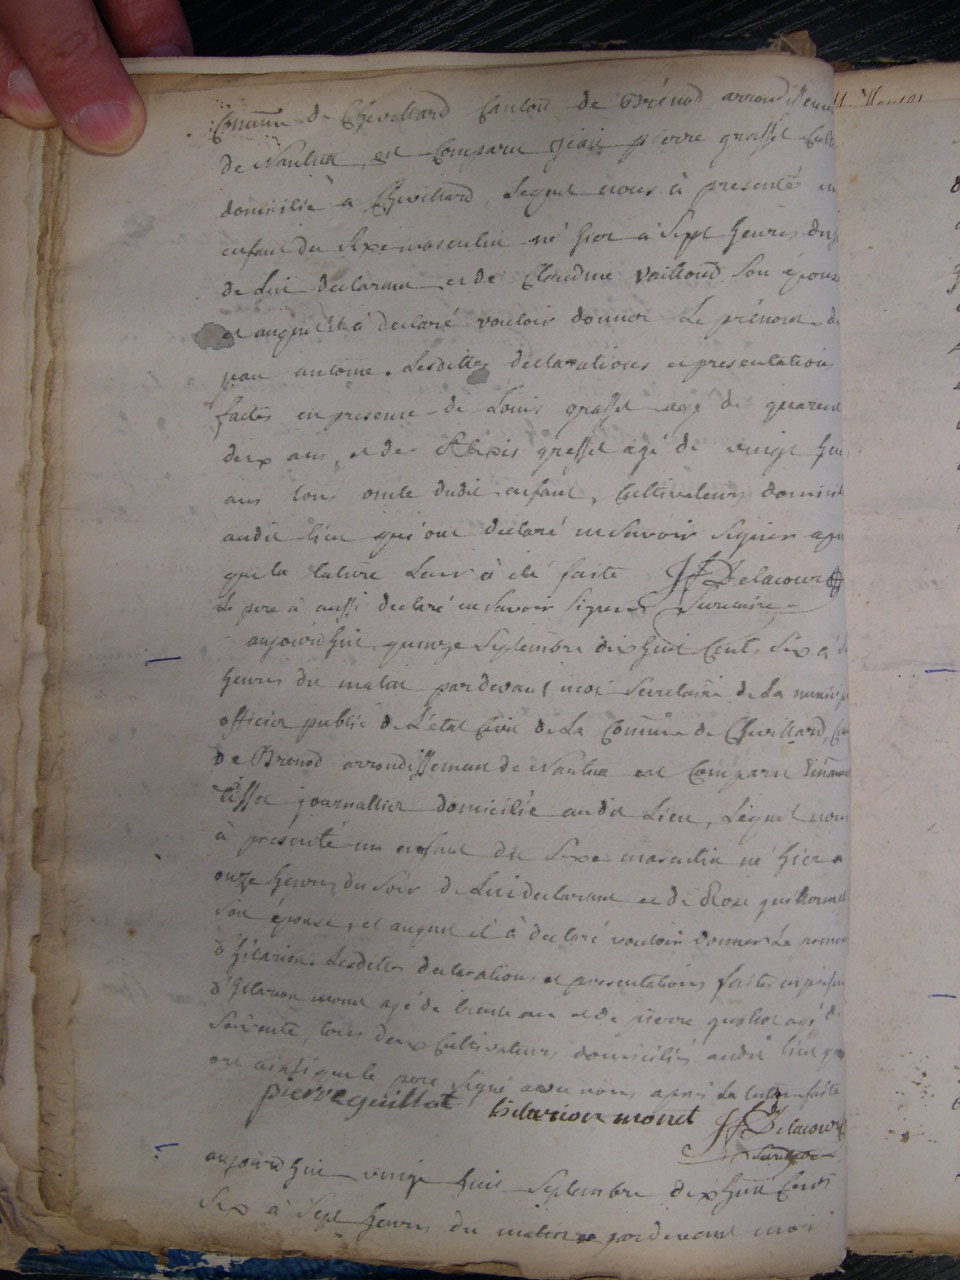 Commune de Chevillard Canton de Brénod arrondissem
de Nantua est Comparu jean pierre grosset Cult
domicilié à Chevillard, Lequel nous à presenté un
enfant du Sexe masculin né hier à Sept heures du
de Lui declarant et de Claudine Vailloud Son épouse
et auquel il à declaré vouloir donner Le prénom de
jean antoine. Lesdittes declarations et presentations
faites en presence de Louis grosset agé de quarente
deux ans, et de Alexis grosset agé de vingt
ans tous oncle dudit enfant, Cultivateurs domicil
audit lieu qui ont declaré ne Savoir Signer apr
que la lature Leur à été faite JJ Delacour
Le pere à aussi declaré ne Savoir Signer Secretaire
aujourd'hui quinze Septembre dix huit Cents Six à
heures du matin pardevant moi Secretaire de La municip
officier public de L'état Civil de La Commune de Chevillard, Can
de Brenod arrondissement de Nantua est Comparu
journallier domicilié audit Lieu, Lequel nous
à presenté un enfant du Sexe masculin né hier a
onze heures du Soir de Lui declarant et de Rose
Son épouse, et auquel il à declaré vouloir donner Le prenom
d'hilarion. Lesdittes declarations et presentations faites en presen
d'hilarion monet agé de trente ans et de pierre guillot agé de
Soixante, tous deux Cultivateurs domiciliés audit lieu qui
ont ainsi que le pere Signé avec nous après La lature faite
pierre guillot hilarion monet JJ Delacour
Secretaire
aujourd'hui vingt huit Septembre dix huit Cents
Six à Sept heures du matin pardevant moi